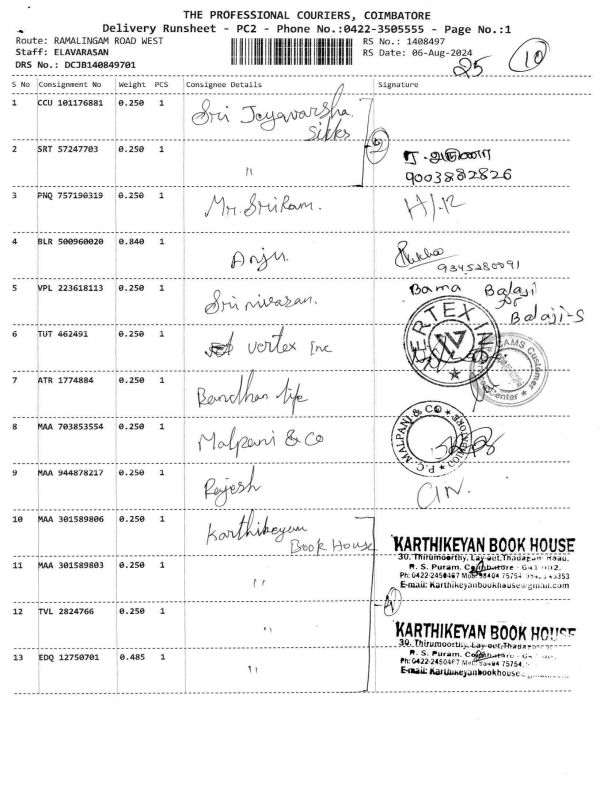 THE PROFESSIONAL COURIERS, COIMBATORE
Delivery Runsheet - PC2 - Phone No.:0422-3505555 - Page No.:1
Route: RAMALINGAM ROAD WEST
Staff: ELAVARASAN
DRS No.: DCJB140849701
RS No.: 1408497
RS Date: 06-Aug-2024
25
10
S No Consignment No Weight PCS Consignee Details Signature
1 CCU 101176881 0.250 1 Sri Jeyavarsha
Silks
2
2 SRT 57247703 0.250 1 "
9003882826
3 PNQ 757190319 0.250 1 Mr. Sriram. H/R
4 BLR 500960020 0.840 1 Anju.
9345280091
5 VPL 223618113 0.250 1 Srinivasan. Bama Balaji
for
Balaji-S
6 TUT 462491 0.250 1 vertex Inc
VERTEX INC
CAMS Customer
7 ATR 1774884 0.250 1 Bandhan life
8 MAA 703853554 0.250 1 Malpani & Co
P.C. MALPANI & CO ★ COIMBATORE ★
9 MAA 944878217 0.250 1 Rajesh
10 MAA 301589806 0.250 1 Karthikeyan
Book House
KARTHIKEYAN BOOK HOUSE
30, Thirumoorthy, Lay-out, Thadagam Road,
R. S. Puram, Coimbatore - 641 002.
Ph: 0422-2450467 Mob: 98404 75754
E-mail: Karthikeyanbookhouse@gmail.com
11 MAA 301589803 0.250 1 "
4
12 TVL 2824766 0.250 1 "
KARTHIKEYAN BOOK HOUSE
30, Thirumoorthy, Lay-out, Thadagam
R. S. Puram, Coimbatore
Ph: 0422-2450467
E-mail: Karthikeyanbookhouse
13 EDQ 12750701 0.485 1 "